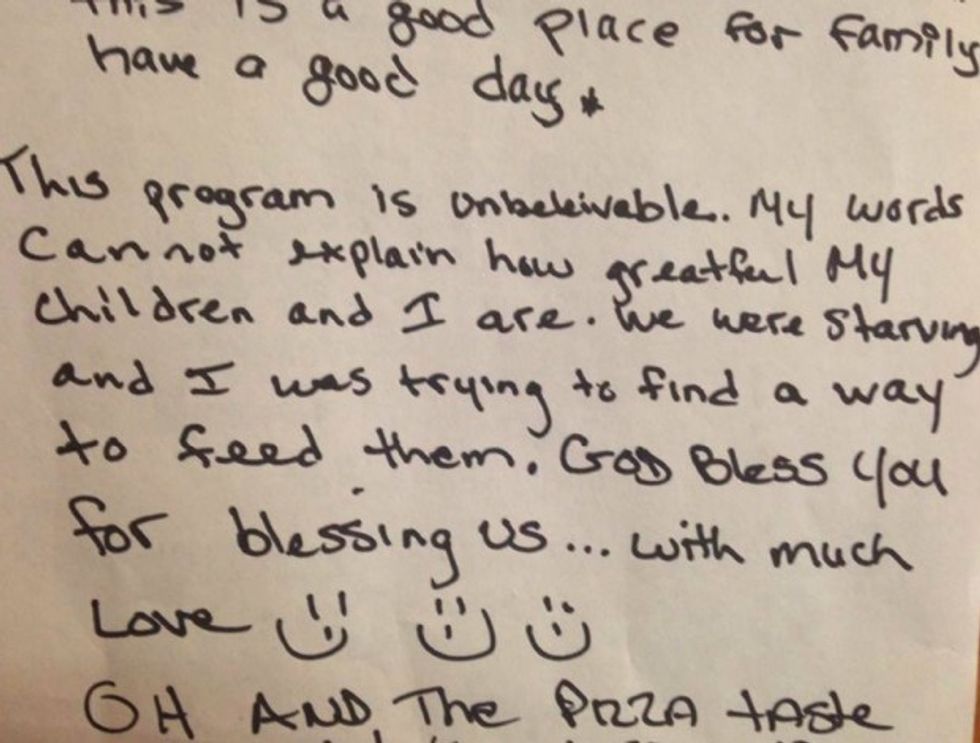 This is a good place for family
have a good day *
This program is unbeleivable. My words
Cannot explain how greatful My
children and I are. We were starving
and I was trying to find a way
to feed them. GOD Bless you
for blessing us... with much
Love
OH AND The Pizza taste